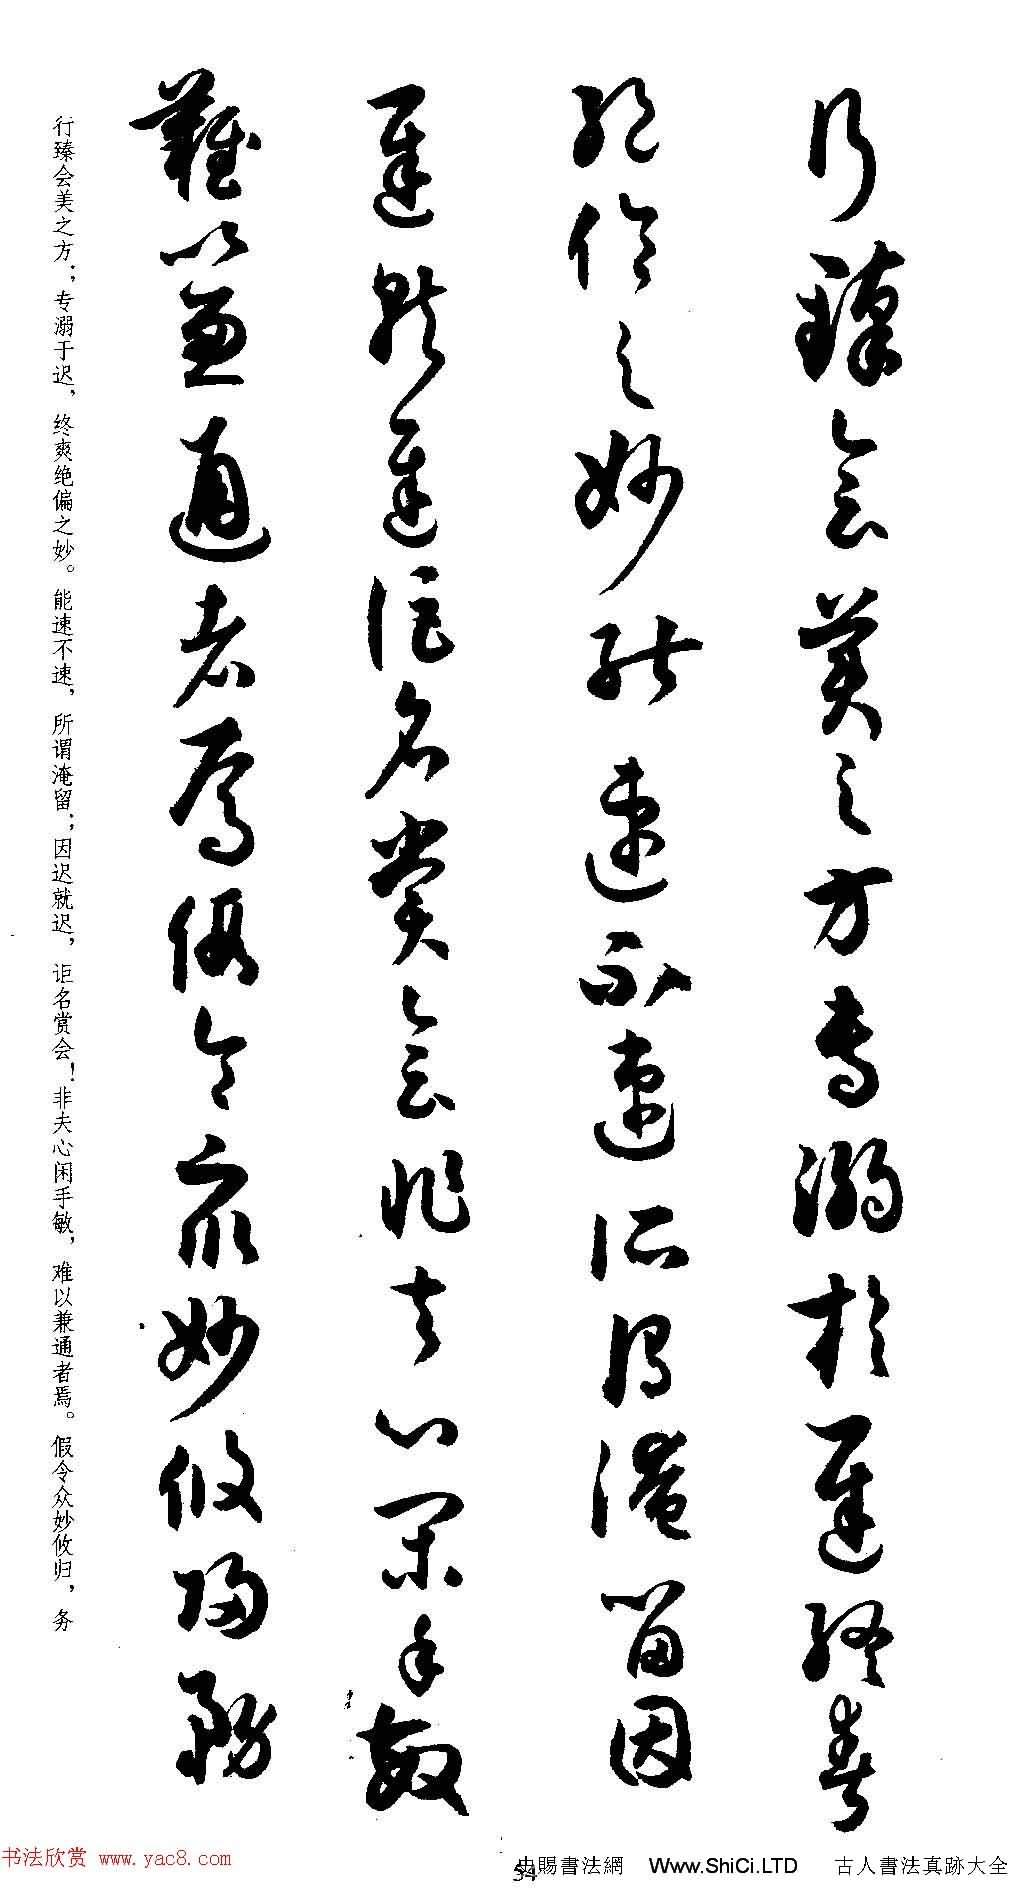 行臻会美之方专溺於遲终爽
绝伦之妙能速不速所谓淹留因
遲就遲讵名赏会非夫心闲手敏
難以兼通者焉假令众妙攸归務
行臻会美之方；专溺于迟，终爽绝偏之妙。能速不速，所谓淹留；因迟就迟，讵名赏会！非夫心闲手敏，难以兼通者焉。假令众妙攸归，务
书法欣赏 www.yac8.com
54
史賜書法網 Www.ShiCi.LTD 古人書法真跡大全